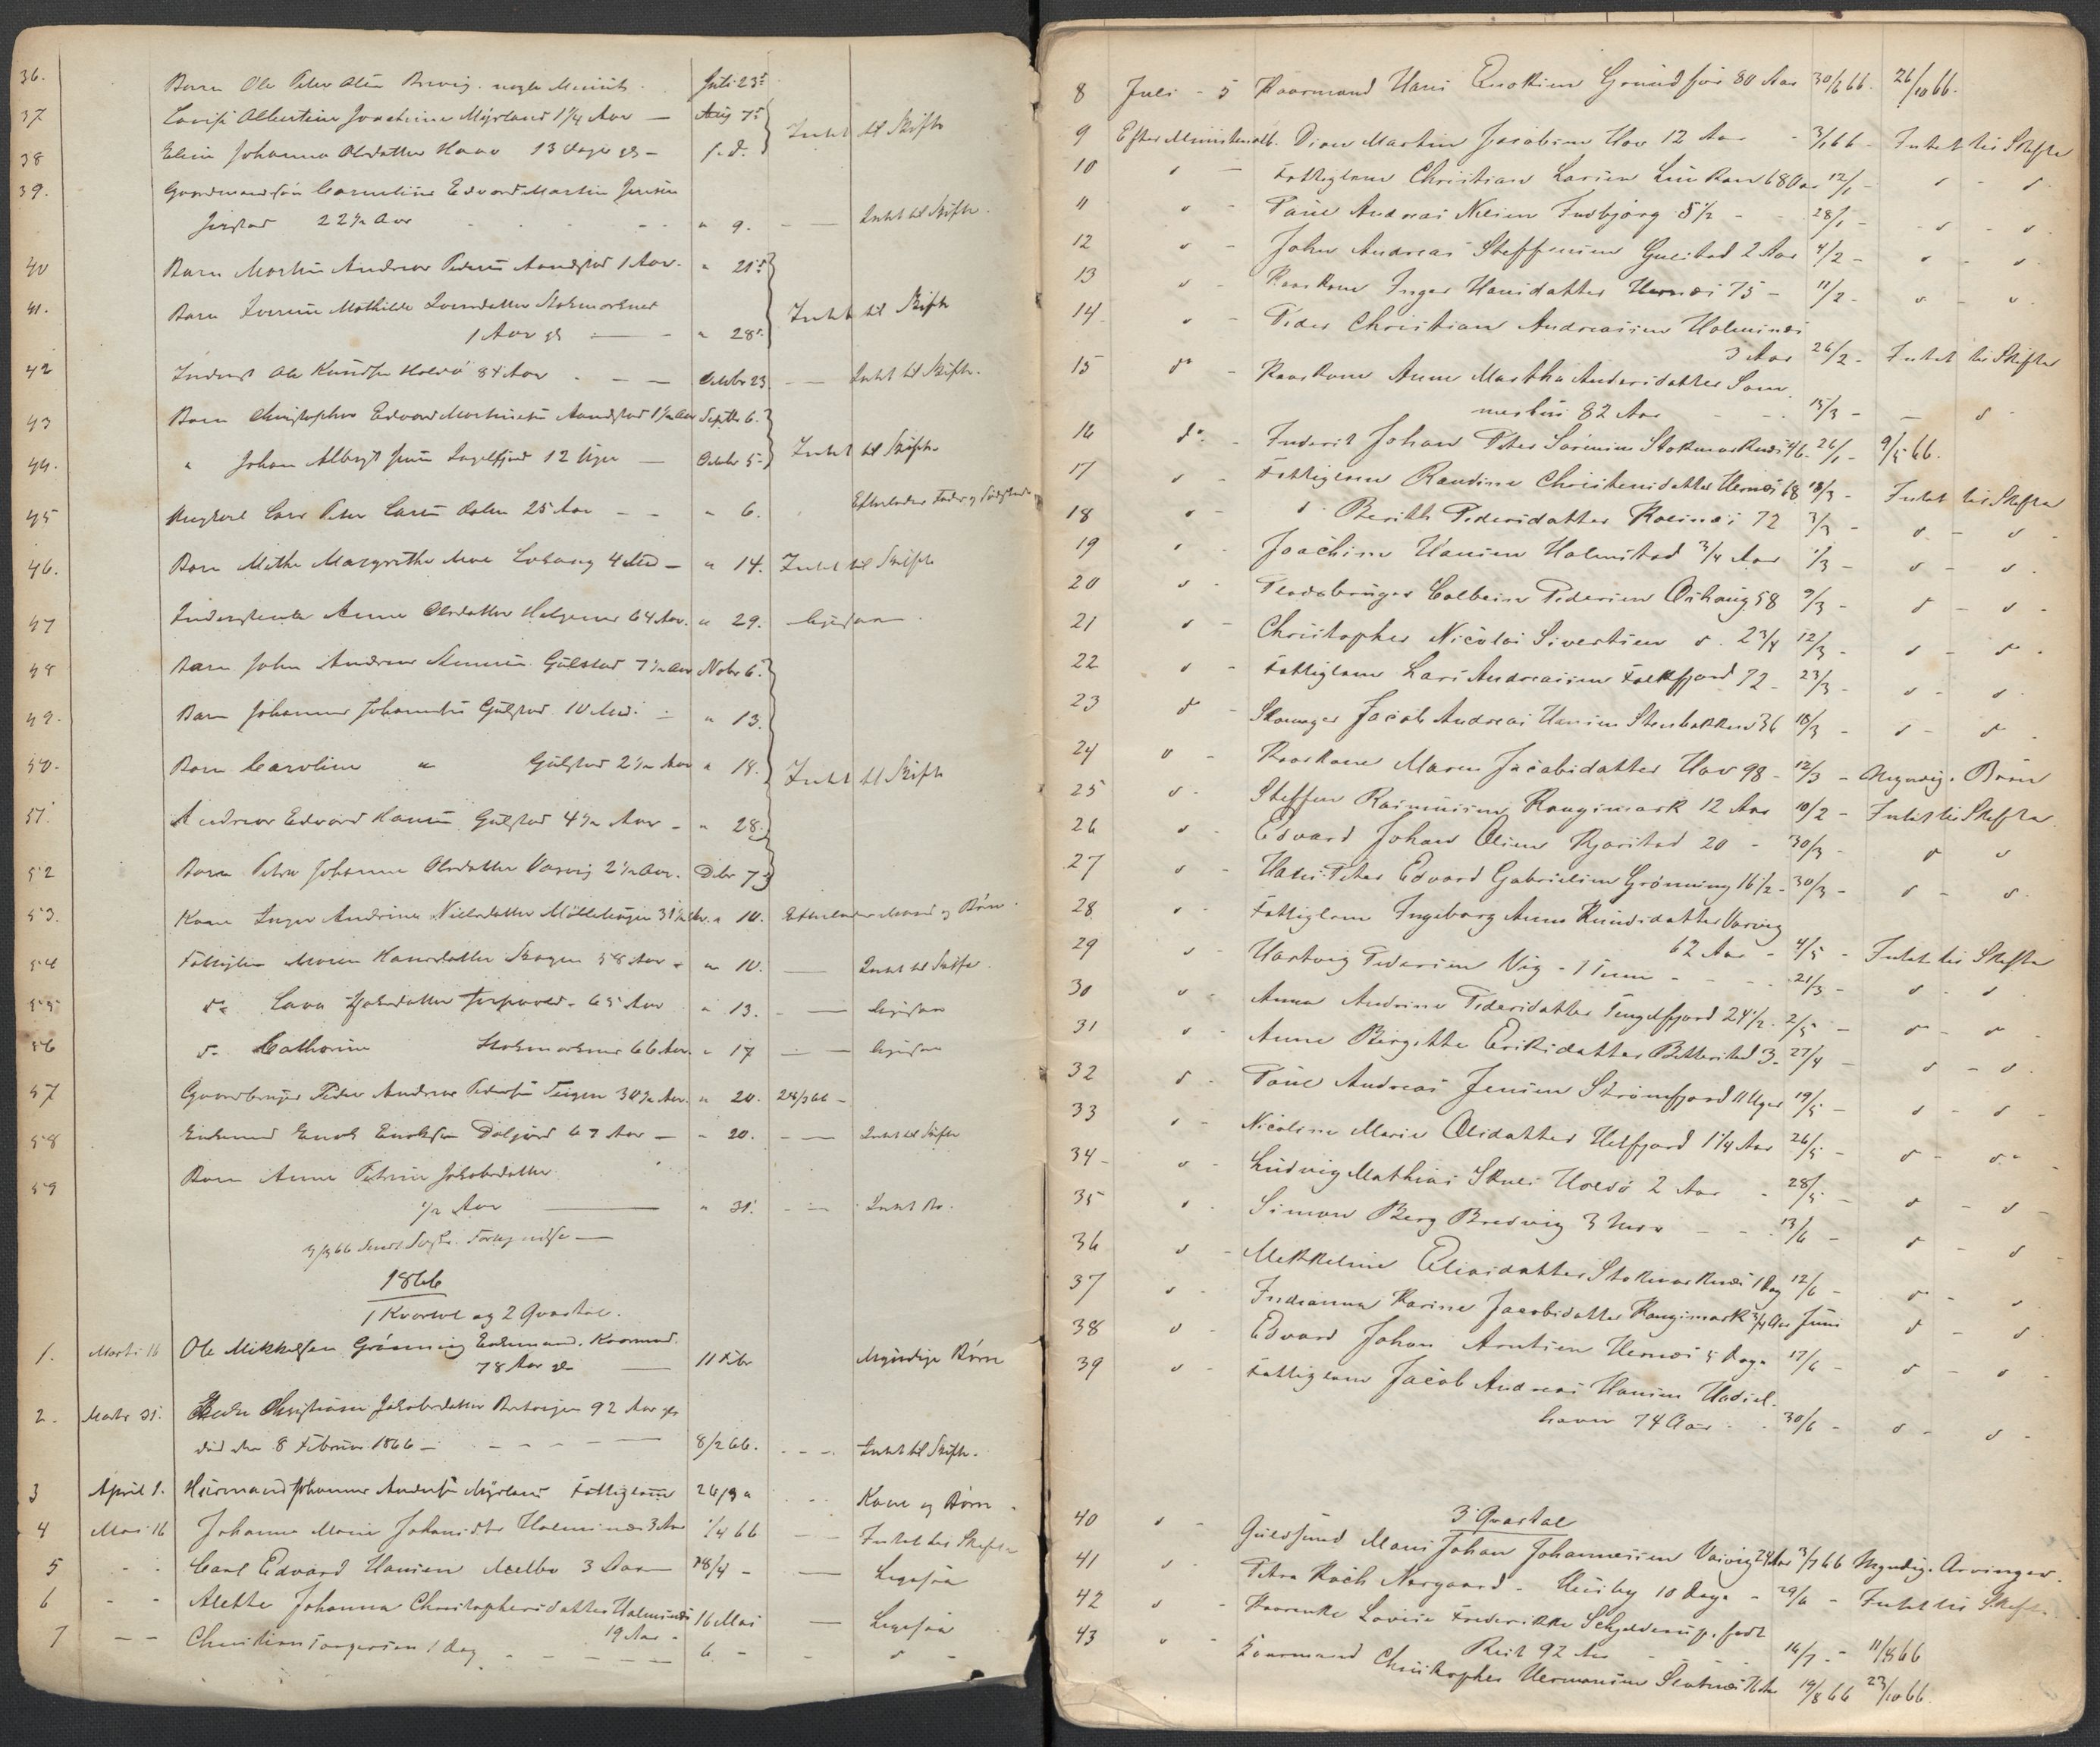 36. Barn Ole Peter Olsen Brevig. nogle Minut. Juli 23.
37 Lovise Albertine Joachime Myrland 1¼ Aar — Aug 7.
38 Elen Johanna Olsdatter Haav 13 Dage gl — s. d. Intet til Skifte
39. Gaardmandssøn Cornelius Edvard Martin Jensen
Jerstad 22½ Aar " 9. — Intet til Skifte.
40 Barn Martin Andreas Pedersen Aandstad 1 Aar. " 21.
41. Barn Mathilde Stokmarknes
1 Aar gl — " 28. Intet til Skifte
42 Inderst Ole Knudsen Holdø 84 Aar — October 23 — Intet til Skifte.
43 Barn Christopher Edvard Aandstad 1½ Aar Septbr 6.
44. " Johan Albrigt Ingelfjord 12 Uger — Octobr 5. Intet til Skifte
45 Ungkarl Lars Peter Larsen 25 Aar — " 6. Efterlader Fader og
46. Barn Mette Margrethe Lovise 4 Md — " 14. Intet til Skifte
47 Anne Olsdatter 64 Aar. " 29. Ligesaa.
48 Barn John Andreas Gulstad 7½ Aar Nobr 6.
49. Barn Johannes Johansen Gulstad 10 Md. — " 13.
50. Barn Caroline " Gulstad 2½ Aar " 18. Intet til Skifte
51. Andreas Edvard Hansen Gulstad 4½ Aar — " 28.
52 Barn Petra Johanne Olsdatter Varvig 2½ Aar. Debr 7.
53. Kone Inger Andrine Nielsdatter 31½ Aar. " 10. Efterlader Mand og Børn.
54 Fattiglem Maren Hansdatter Skogen 58 Aar — " 10. — Intet til Skifte.
55 d. Lava 65 Aar " 13. — Ligesaa
56 d. Cathrine Stokmarknes 66 Aar. " 17 — Ligesaa
57 Gaardbruger Peder Andreas Pedersen Teigen 30½ Aar. " 20. 28/3 66 —
58 Enkemand Enok Enoksen Daljord 67 Aar — " 20. — Intet til Skifte
59 Barn Anne Petrine Jakobsdatter
½ Aar — " 31. — Intet do.
3/3 66 Sendt —
1866
1 Kvartal og 2 Qvartal.
1. Marts 16 Ole Mikkelsen Grønning Enkemand. Kaarmand.
78 Aar gl — 11 Febr Myndige Børn
2. Marts 31. Christiane Jakobsdatter 92 Aar gl
død den 8 Februar 1866 — 8/2 66. Intet til Skifte.
3 April 1. Huusmand Johannes Andersen Myrland Fattiglem 26/3 " Kone og Børn
4 Mai 16 Johanna Marie Johansdtr Holmsnæs 3 Aar ¼ 66 — Intet til Skifte
5 - - Carl Edvard Hansen Melbo 3 Aar 28/4 — Ligesaa
6 - - Alette Johanna Christophersdatter Holmsnæs
19 Aar - 16 Mai — Ligesaa
7 - - Christian Torgersen 1 Dag 6. - d -
8 Juli - 5 Kaarmand Hans Enoksen Grundfjor 80 Aar 30/6 66. 26/10 66.
9 Efter Ministerialb. Martin Jacobsen Hov 12 Aar - 3/1 66 - Intet til Skifte
10 d - Fattiglem Christian Larsen 68 Aar 12/1 - d - d.
11 d - Paul Andreas Nilsen Indbjørg 5½ - 28/1 - d - d.
12 d - John Andreas Steffensen Gulstad 2 Aar 4/2 - d - d
13 d - Kaarkone Inger Hansdatter Hernæs 75 - 11/2 - d - d.
14 d - Peder Christian Andreassen Holmsnæs
3 Aar 26/2 - Intet til Skifte
15 d - Kaarkone Anne Martha Andersdatter Som
merhus 82 Aar - 15/3 - d
16 d. - Inderst Johan Peter Sørensen Stokmarknæs 46. 26/1 - 9/5 66.
17 d - Fattiglem Randine Christensdatter Hernæs 68 18/3 - Intet til Skifte
18 d - d. Berith Pedersdatter 72 3/3 - d - d.
19 d - Joachim Hansen Holmstad ¾ Aar 1/3 - d - d.
20 d - Pladsbruger Colbein Pedersen Oshaug 58 9/3 - d - d.
21 d - Christopher Nicolai Sivertsen d. 2¾ 12/3 - d - d.
22 d - Fattiglem Lars Andreassen Falkfjord 72 - 23/3 - d - d.
23 d - Skomager Jacob Andreas Hansen Stenbakken 36 18/3 - d - d.
24 d - Kaarkone Maren Jacobsdatter Hov 98 - 12/3 - Myndige Børn
25 d - Steffen Rasmussen Rangsmark 12 Aar 10/2 - Intet til Skifte
26 d - Edvard Johan Olsen Kjørstad 20 - 30/3 - d d
27 d - Hans Peter Edvard Gabrielsen Grønning 16½ - 30/3 - d - d.
28 d - Fattiglem Ingeborg Anna Knudsdatter Varvig
62 Aar - 4/5 - Intet til Skifte
29 d - Hartvig Pedersen Vig - 1 Time - 21/3 - d - d
30 d - Anna Andrine Pedersdatter Tengelfjord 24½. 2/5 - d - d.
31 d - Anne Birgitte Eriksdatter Bitterstad 3. 27/4 - d - d.
32 d - Paul Andreas Jensen Strømfjord 11 Uger 19/5 - d - d -
33 d - Nicoline Marie Olsdatter Helfjord 1¼ Aar 26/5 - d - d -
34 - d - Ludvig Mathias Skuls Holdø 2 Aar - 28/5 - d - d -
35 d. Simon Berg Bredvig 3 Uger - 13/6 - d - d
36 d - Mekkeline Eliasdatter Stokmarknæs 1 Dag 12/6 - d - d
37 d - Indianna Karine Jacobsdatter Rangsmark ¾ Aar Juni d - d.
38 d - Edvard Johan Arntsen Hernæs 5 Dage 17/6 - d - d.
39 d - Fattiglem Jacob Andreas Hansen Hadsel
havn 74 Aar - 30/6 - d - d -
3 Qvartal
40 d - Guldsmed Mons Johan Johannessen Varvig 24 Aar 3/7 66 Myndige Arvinger.
41 d - Petra Koch Norgaard - Husby 10 Dage - 29/6 - Intet til Skifte
42 d - Kaarenke Lovise Frederikke Schjelderup, født
Reis 92 Aar - 14/7 - 11/8 66
43 d - Kaarmand Christopher Hermansen 19/8 66 23/10 66.